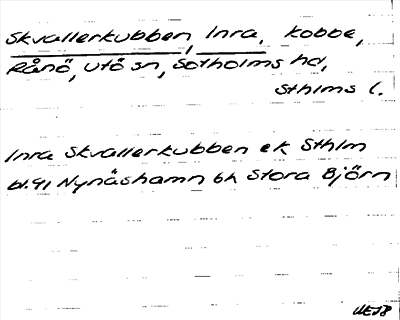 Skvallerkubben, Inra, kobbe,
Rånö, Utö sn, Sotholms hd,
Sthlms l.
Inra Skvallerkubben ek Sthlm
bl.91 Nynäshamn bh Stora Björn